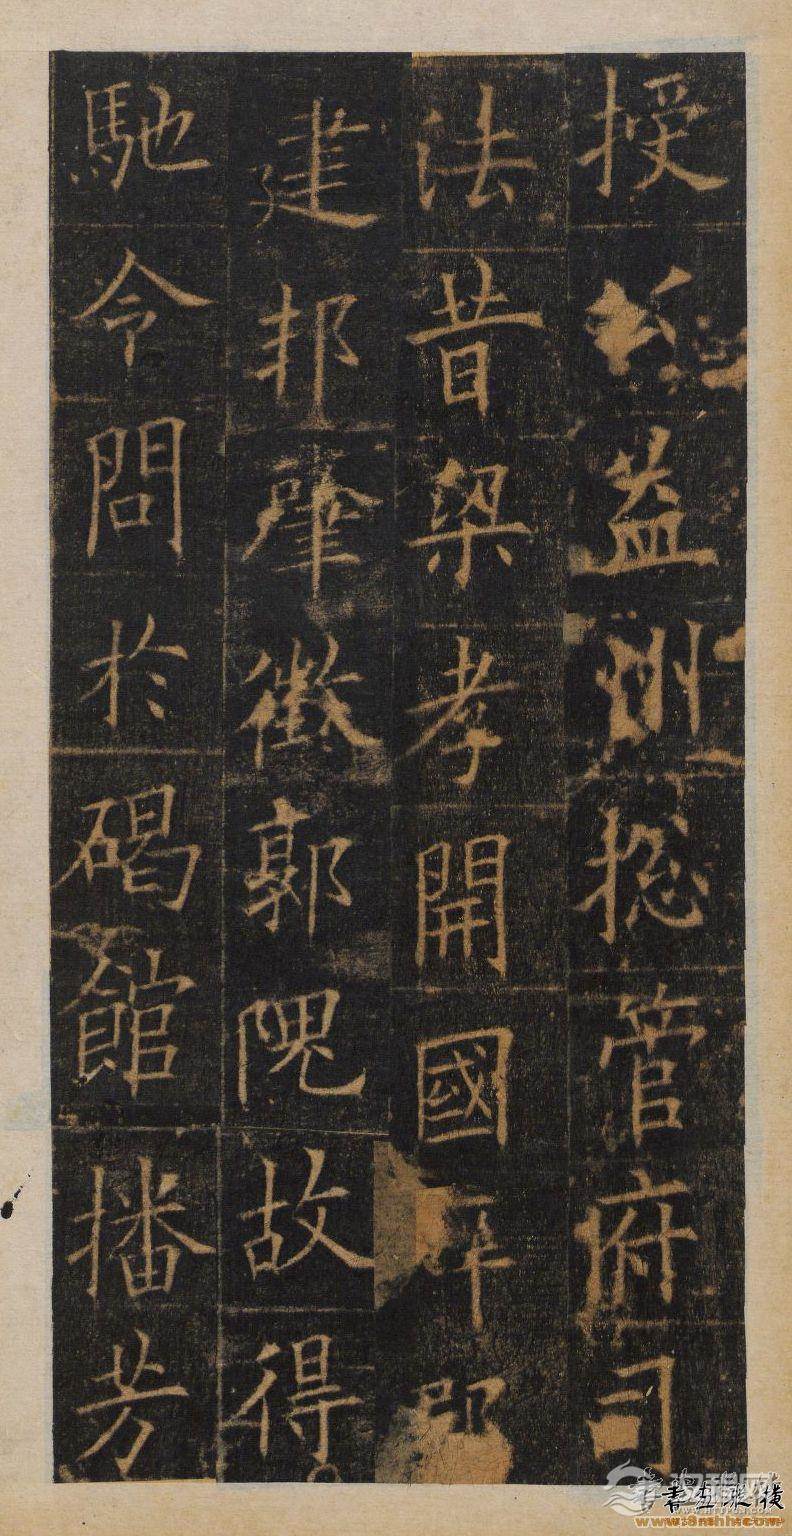 授公益州揔管府司
法昔梁孝開國
建邦肇徵郭隗故得
馳令問於碣館播芳